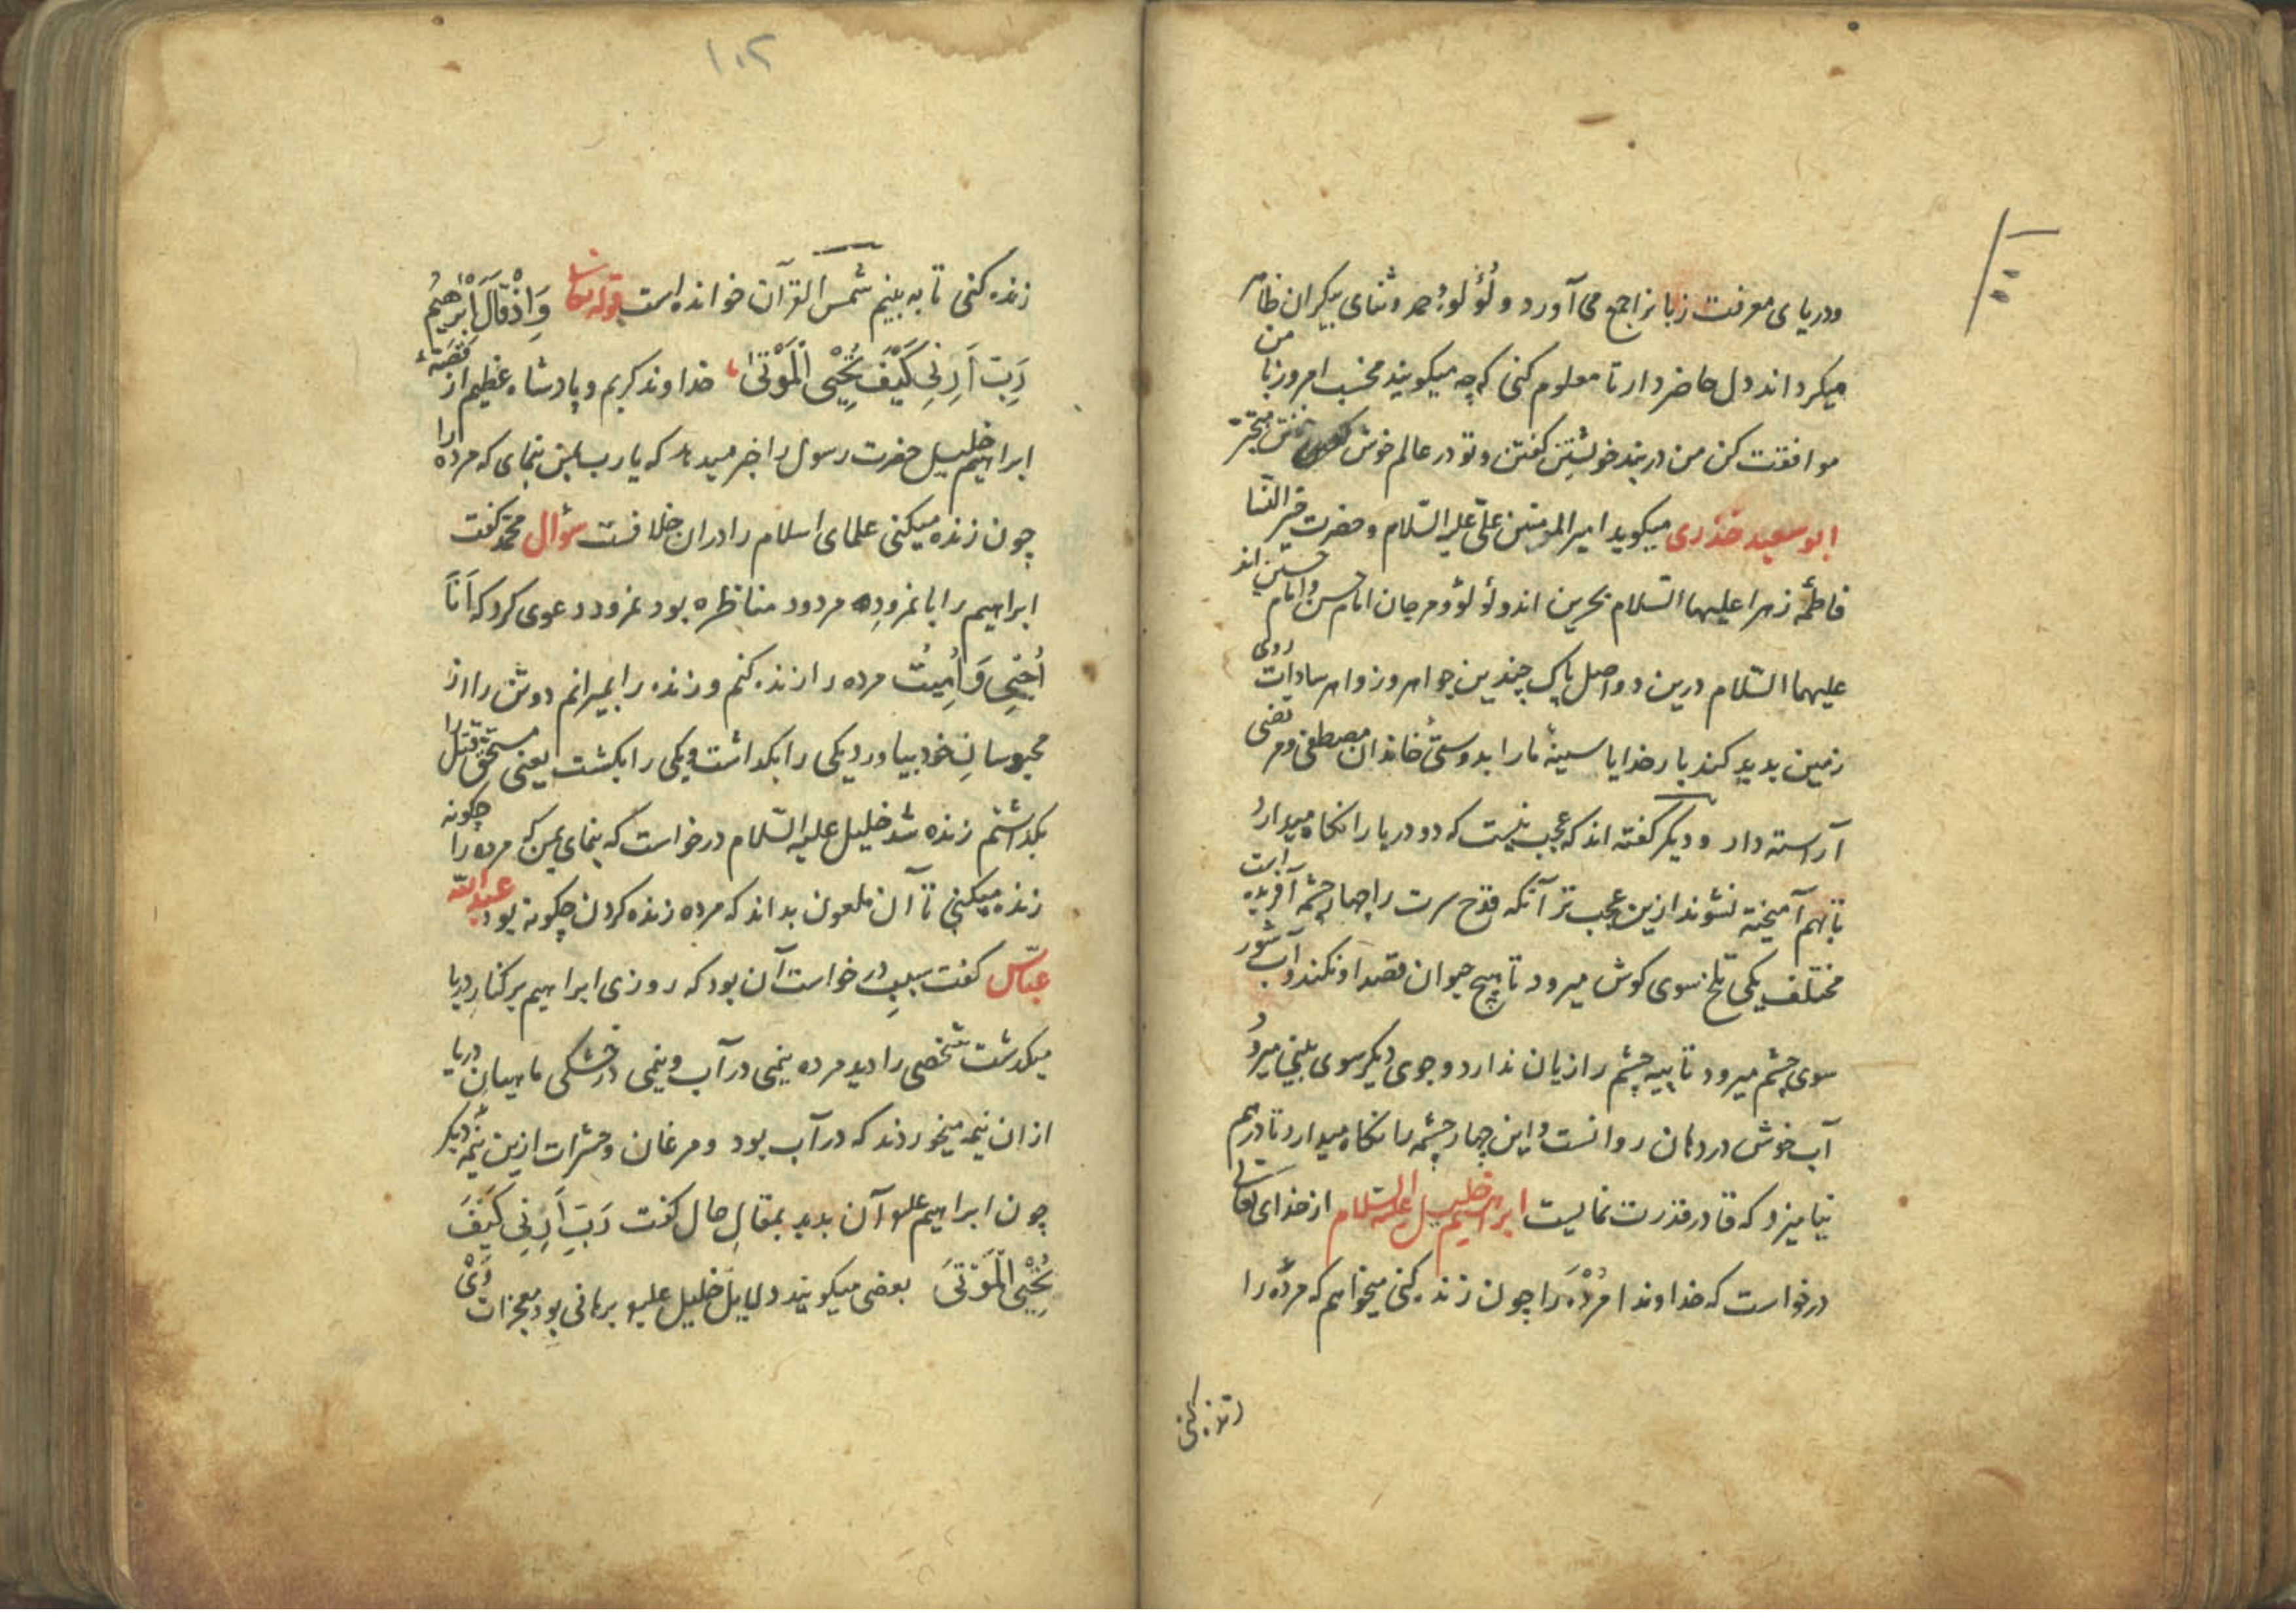 ودریای معرفت زبانرا جمع می آورد و لؤلوء حمد و ثنای بیکران ظاهر
میکرداند دل حاضر دار تا معلوم کنی که چه میکویند محتسب امروز با من
موافقت کن من در بند خویشتن کفتن و تو در عالم خوش
ابو سعید خذری میکوید امیر المومنین علی علیه السّلام و حضرت خیر النّسا
فاطمه زهرا علیهما السّلام بحرین اند و لؤلؤ و مرجان امام حسن و امام حسین اند
علیهما السّلام درین دو اصل پاک چندین جواهر و زواهر سادات روی
زمین بدید کند بار خدایا سینهٔ ما را بدوستیٔ خاندان مصطفی و مرتضی
آراسته دار و دیکر کفته اند که عجب نیست که دو دریا را نکاه میدارد
تا بهم آمیخته نشوند ازین عجب تر آنکه قدح سرت را چهار چشمه آفریده است
مختلف یکی تلخ سوی کوش میرود تا هیچ حیوان قصد او نکند و آب شور
سوی چشم میرود تا پیه چشم را زیان ندارد و جوی دیکر سوی بینی میرود
آب خوش در دهان روانست و این چهار چشمه را نکاه میدارد تا در هم
نیامیزد که قادر قدرت نمایست ابراهیم خلیل علیه السّلام از خدای تعالی
درخواست که خداوندا مُرْدَه را چون زنده کنی میخواهم که مرده را
زنده کنی
۱۰۲
زنده کنی تا به بینم شمس القرآن خوانده است قوله تعالی وَاِذْ قَالَ اِبْرٰهِیمُ
رَبِّ اَرِنِی کَیْفَ تُحْیِی الْمَوْتٰی خداوند کریم و پادشاه عظیم از قصّهٔ
ابراهیم خلیل حضرت رسول را خبر میدهد که یا رب بمن بنمای که مرده را
چون زنده میکنی علمای اسلام را در ان خلافست سؤال محمّد کفت
ابراهیم را با نمرود مردود مناظره بود نمرود دعوی کرد که اَنَا
اُحْیِی وَ اُمِیتُ مرده را زنده کنم و زنده را بمیرانم دو تن را از
محبوسانِ خود بیاورد یکی را بکداشت و یکی را بکشت یعنی مستحق قتل را
بکداشتم زنده شد خلیل علیه السّلام درخواست که بنمای بمن که مرده را چکونه
زنده میکنی تا آن ملعون بداند که مرده زنده کردن چکونه بود عبد اللّه
عبّاس کفت سببِ درخواست آن بود که روزی ابراهیم بر کنارِ دریا
میکدشت شخصی را دید مرده نیمی در آب و نیمی در خشکی ماهیان دریا
از ان نیمه میخوردند که در آب بود و مرغان و حشرات ازین نیمه دیکر
چون ابراهیم علیه آن بدید بمقالِ حال کفت رَبِّ اَرِنِی کَیْفَ
تُحْیِی الْمَوْتَی بعضی میکویند دلایل خلیل علیه برهانی بود معجزات وَیْ